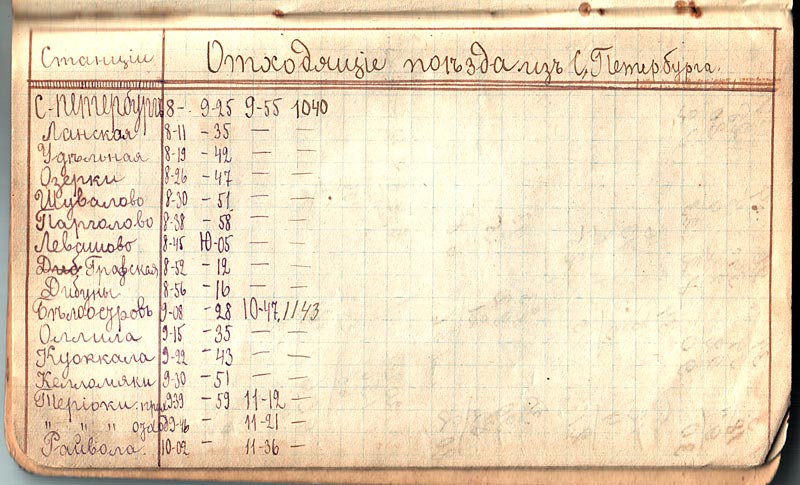 Станціи Отходящіе поѣзда изъ С. Петербурга.
С-Петербургъ 8- 9-25 9-55 1040
Ланская 8-11 -35 — —
Удѣльная 8-19 -42 — —
Озерки 8-26 -47 — —
Шувалово 8-30 -51 — —
Парголово 8-38 -58 — —
Левашово 8-45 10-05 — —
Графская 8-52 -12 — —
Дибуны 8-56 -16 — —
Бѣлоостровъ 9-08 -28 10-47 1143
Оллила 9-15 -35 — —
Куоккала 9-22 -43 — —
Келломяки 9-30 -51 — —
Теріоки 9-39 -59 11-12 —
" " " " 9-46 — 11-21 —
Райвола. 10-02 — 11-36 —